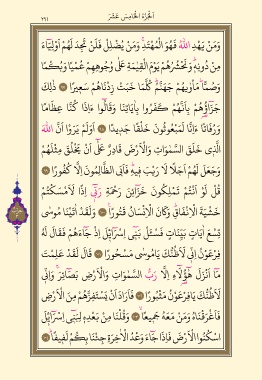 الجزء الخامس عشر
٢٩١
وَمَنْ يَهْدِ اللّٰهُ فَهُوَ الْمُهْتَدِ وَمَنْ يُضْلِلْ فَلَنْ تَجِدَ لَهُمْ اَوْلِيَٓاءَ
مِنْ دُونِهٖ وَنَحْشُرُهُمْ يَوْمَ الْقِيٰمَةِ عَلٰى وُجُوهِهِمْ عُمْيًا وَبُكْمًا
وَصُمًّا مَأْوٰيهُمْ جَهَنَّمُ كُلَّمَا خَبَتْ زِدْنَاهُمْ سَعِيرًا ذٰلِكَ
جَزَٓاؤُ۬هُمْ بِاَنَّهُمْ كَفَرُوا بِاٰيَاتِنَا وَقَالُٓوا ءَاِذَا كُنَّا عِظَامًا
وَرُفَاتًا ءَاِنَّا لَمَبْعُوثُونَ خَلْقًا جَدِيدًا اَوَلَمْ يَرَوْا اَنَّ اللّٰهَ
الَّذِي خَلَقَ السَّمٰوَاتِ وَالْاَرْضَ قَادِرٌ عَلٰٓى اَنْ يَخْلُقَ مِثْلَهُمْ
وَجَعَلَ لَهُمْ اَجَلًا لَا رَيْبَ فِيهِ فَاَبَى الظَّالِمُونَ اِلَّا كُفُورًا
قُلْ لَوْ اَنْتُمْ تَمْلِكُونَ خَزَٓائِنَ رَحْمَةِ رَبِّٓي اِذًا لَاَمْسَكْتُمْ
خَشْيَةَ الْاِنْفَاقِ وَكَانَ الْاِنْسَانُ قَتُورًا وَلَقَدْ اٰتَيْنَا مُوسٰى
تِسْعَ اٰيَاتٍ بَيِّنَاتٍ فَسْـَٔلْ بَنِٓي اِسْرَٓائِلَ اِذْ جَٓاءَهُمْ فَقَالَ لَهُ
فِرْعَوْنُ اِنِّي لَاَظُنُّكَ يَا مُوسٰى مَسْحُورًا قَالَ لَقَدْ عَلِمْتَ
مَٓا اَنْزَلَ هٰٓؤُ۬لَٓاءِ اِلَّا رَبُّ السَّمٰوَاتِ وَالْاَرْضِ بَصَٓائِرَ وَاِنِّي
لَاَظُنُّكَ يَا فِرْعَوْنُ مَثْبُورًا فَاَرَادَ اَنْ يَسْتَفِزَّهُمْ مِنَ الْاَرْضِ
فَاَغْرَقْنَاهُ وَمَنْ مَعَهُ جَمِيعًا وَقُلْنَا مِنْ بَعْدِهٖ لِبَنِٓي اِسْرَٓائِلَ
اسْكُنُوا الْاَرْضَ فَاِذَا جَٓاءَ وَعْدُ الْاٰخِرَةِ جِئْنَا بِكُمْ لَفِيفًا